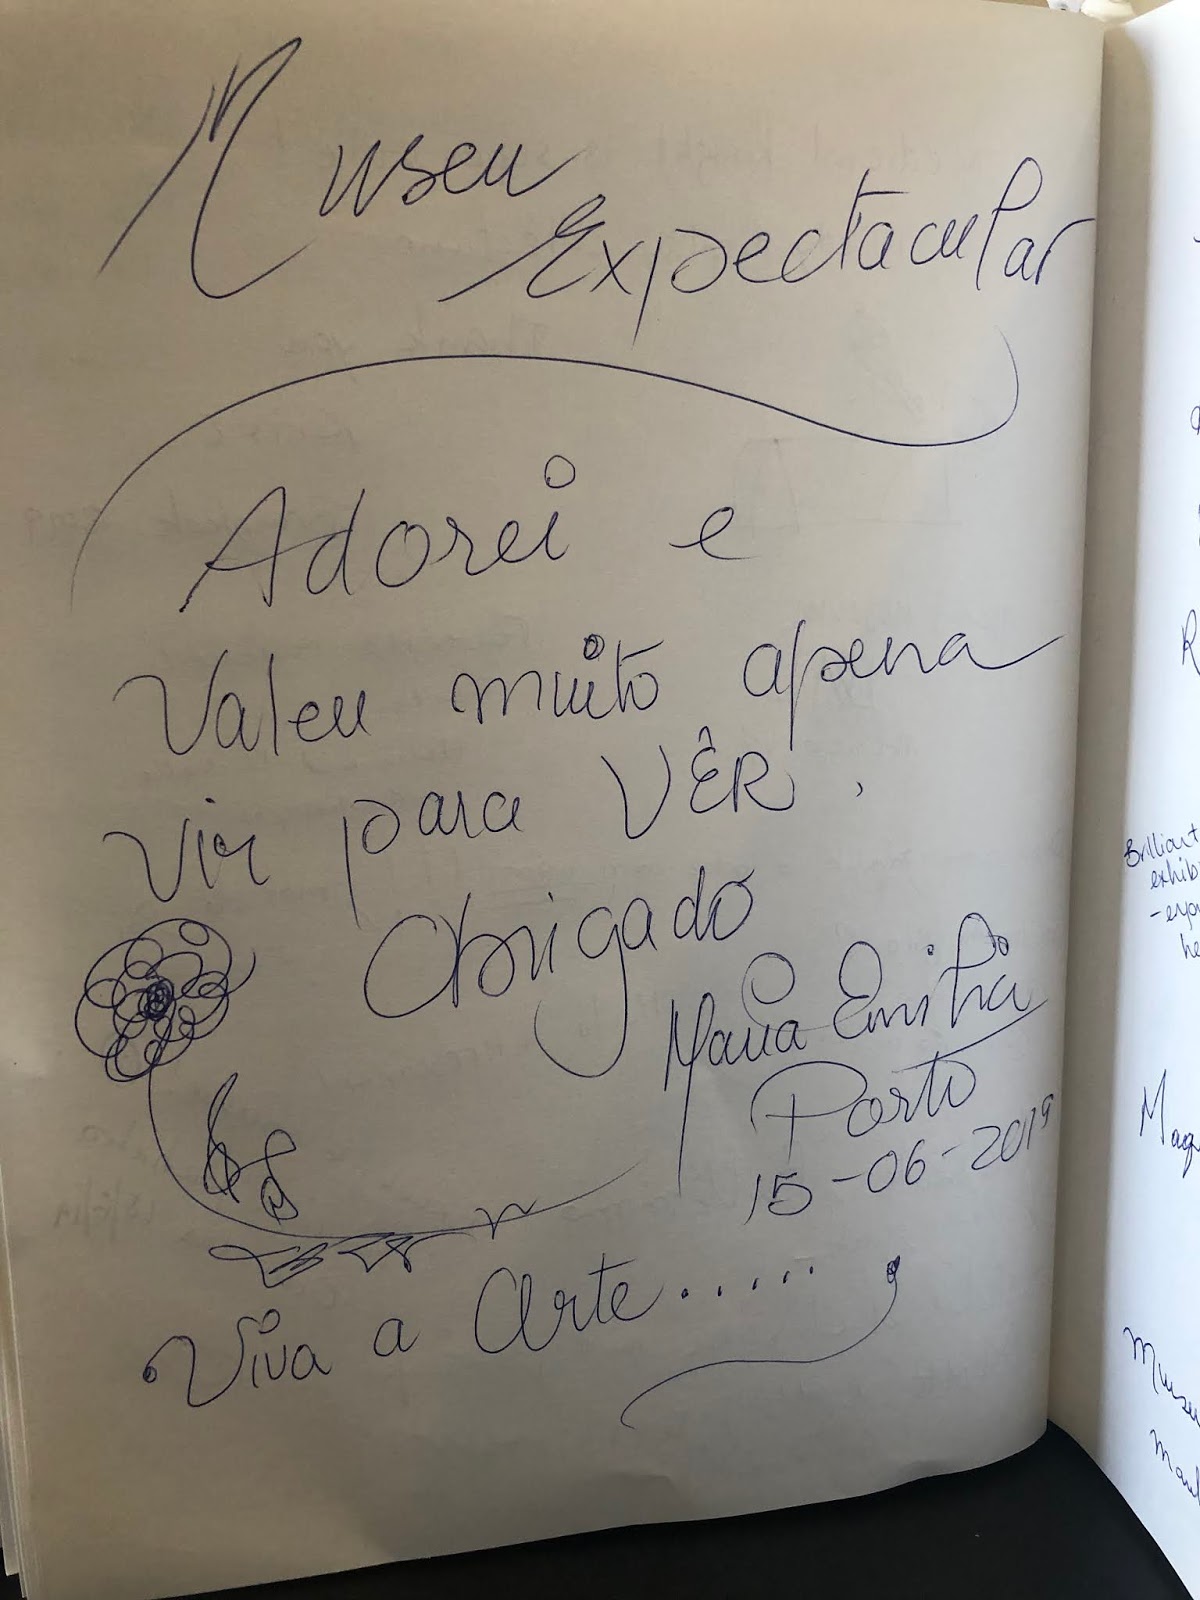 Museu
Expectacular
Adorei e
Valeu muito apena
vir para VÊR.
Obrigado
Maria Emilia
Porto
15-06-2019
Viva a Arte.....
Brilliant
exhib
he
Maq
Museu